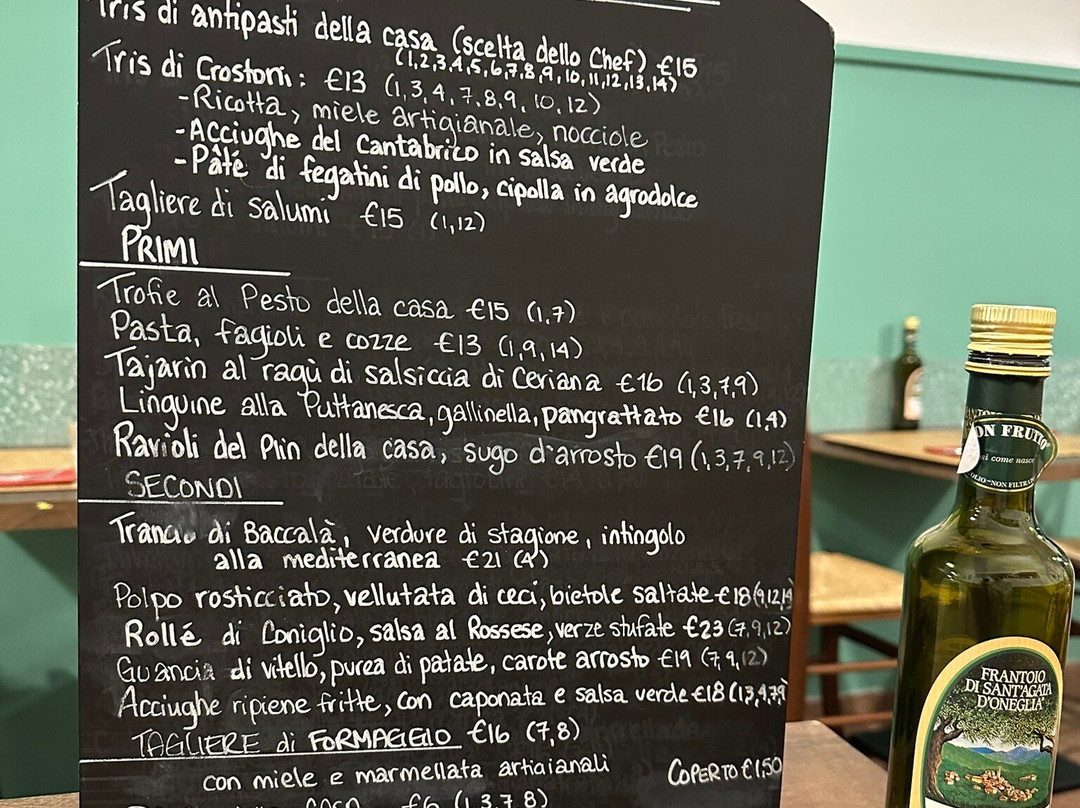 Tris di antipasti della casa (scelta dello Chef) €15
(1,2,3,4,5,6,7,8,9,10,11,12,13,14)
Tris di Crostoni: €13 (1,3,4,7,8,9,10,12)
-Ricotta, miele artigianale, nocciole
-Acciughe del Cantabrico in salsa verde
-Pâté di fegatini di pollo, cipolla in agrodolce
Tagliere di salumi €15 (1,12)
PRIMI
Trofie al Pesto della casa €15 (1,7)
Pasta, fagioli e cozze €13 (1,9,14)
Tajarin al ragù di salsiccia di Ceriana €16 (1,3,7,9)
Linguine alla Puttanesca, gallinella, pangrattato €16 (1,4)
Ravioli del Plin della casa, sugo d'arrosto €19 (1,3,7,9,12)
SECONDI
Trancio di Baccalà, verdure di stagione, intingolo
alla mediterranea €21 (4)
Polpo rosticciato, vellutata di ceci, bietole saltate €18 (9,12,14)
Rollé di Coniglio, salsa al Rossese, verze stufate €23 (7,9,12)
Guancia di vitello, purea di patate, carote arrosto €19 (7,9,12)
Acciughe ripiene fritte, con caponata e salsa verde €18
TAGLIERE di FORMAGGIO €16 (7,8)
con miele e marmellata artigianali
COPERTO €1,50
€6 (1,3,7,8)
FRUTTO
si come nasce
OLIO "NON FILTRA
FRANTOIO
DI SANT'AGATA
D'ONEGLIA